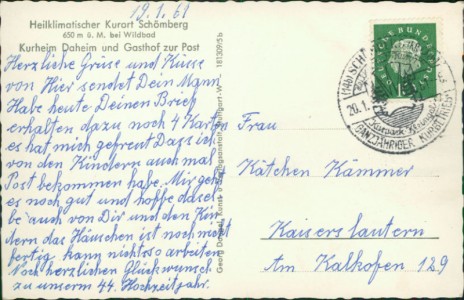 19.1.61
Heilklimatischer Kurort Schömberg
650 m ü. M. bei Wildbad
Kurheim Daheim und Gasthof zur Post
Herzliche Grüse und Küsse
von Hier sendet Dein Mann
Habe heute Deinen Brief
erhalten dazu noch 4 Karten
es hat mich gefreut Dass ich
von den Kindern auch mal
Post bekommen habe. Mir geht
es noch gut und hoffe dasel
be auch von Dir und den Kin
dern das Häuschen ist noch nicht
fertig kann nichts so arbeiten
Noch herzlichen Glückwunsch
zu unserm 44. Hochzeitsjahr.
181309/5b
Georg Kunst- u. Verlagsanstalt, Stuttgart-W
DEUTSCHE BUNDESPOST
(14b) SCH
20.1.
GANZJÄHRIGER KURBETRIEB
Frau
Kätchen Kämmer
Kaiserslautern
Am Kalkofen 129